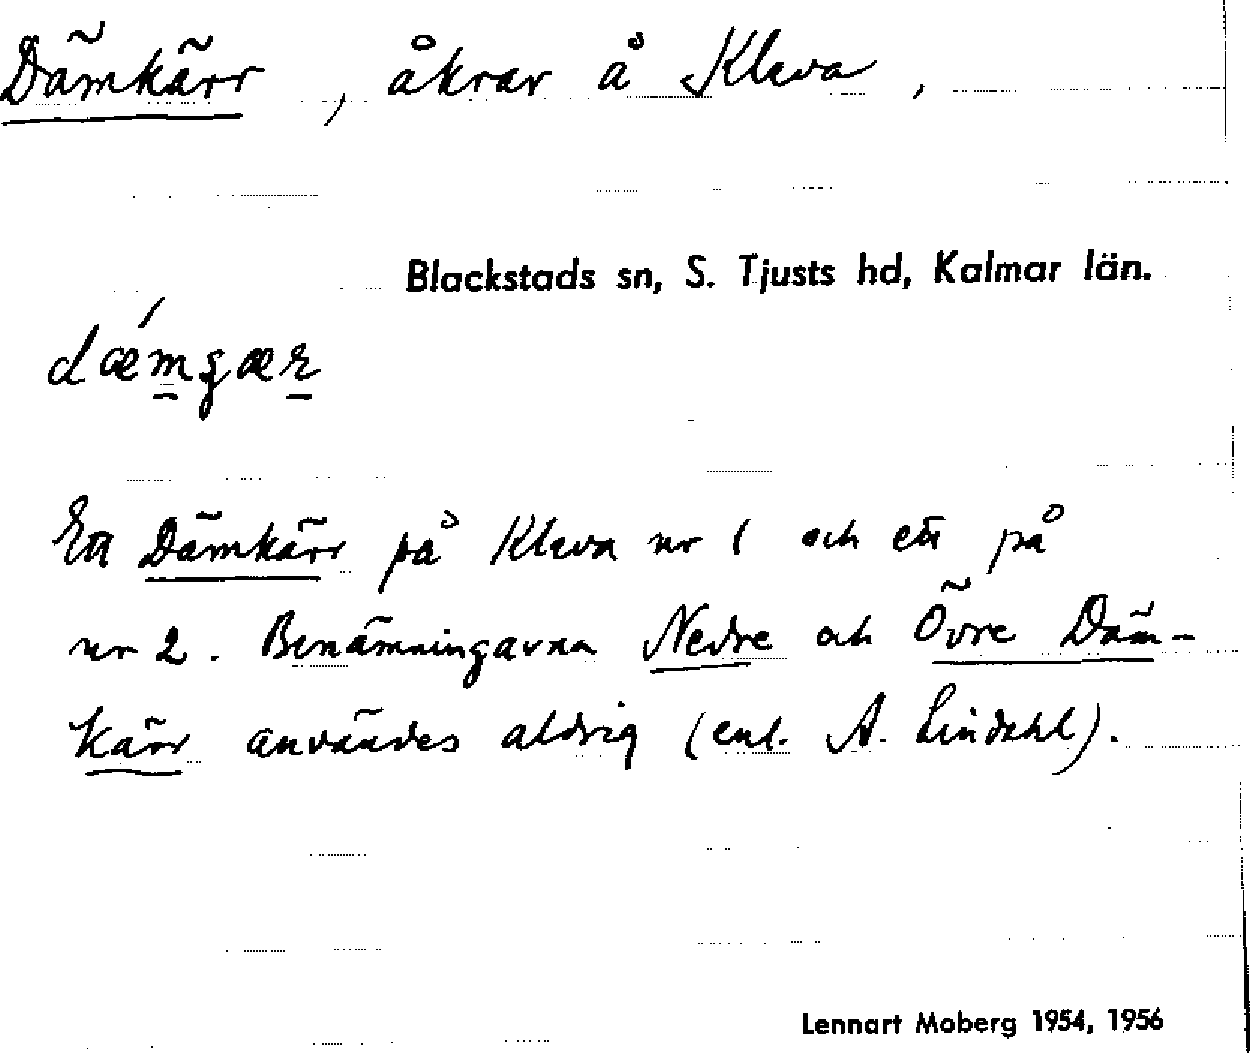 Dämkärr, åkrar å Kleva,
Blackstads sn, S. Tjusts hd, Kalmar län.
dǽm̠gær̠
Ett Dämkärr på Kleva nr 1 och ett på
nr 2. Benämningarna Nedre och Övre Däm-
kärr användes aldrig (enl. A. Lindahl).
Lennart Moberg 1954, 1956